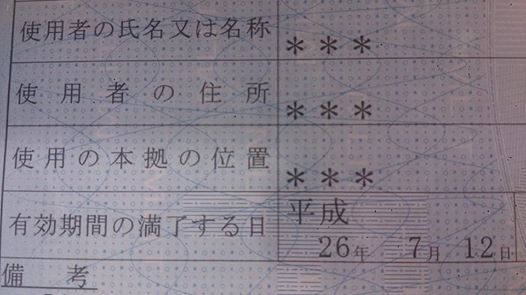 使用者の氏名又は名称
＊＊＊
使用者の住所
＊＊＊
使用の本拠の位置
＊＊＊
有効期間の満了する日
平成
26年 7月 12日
備考